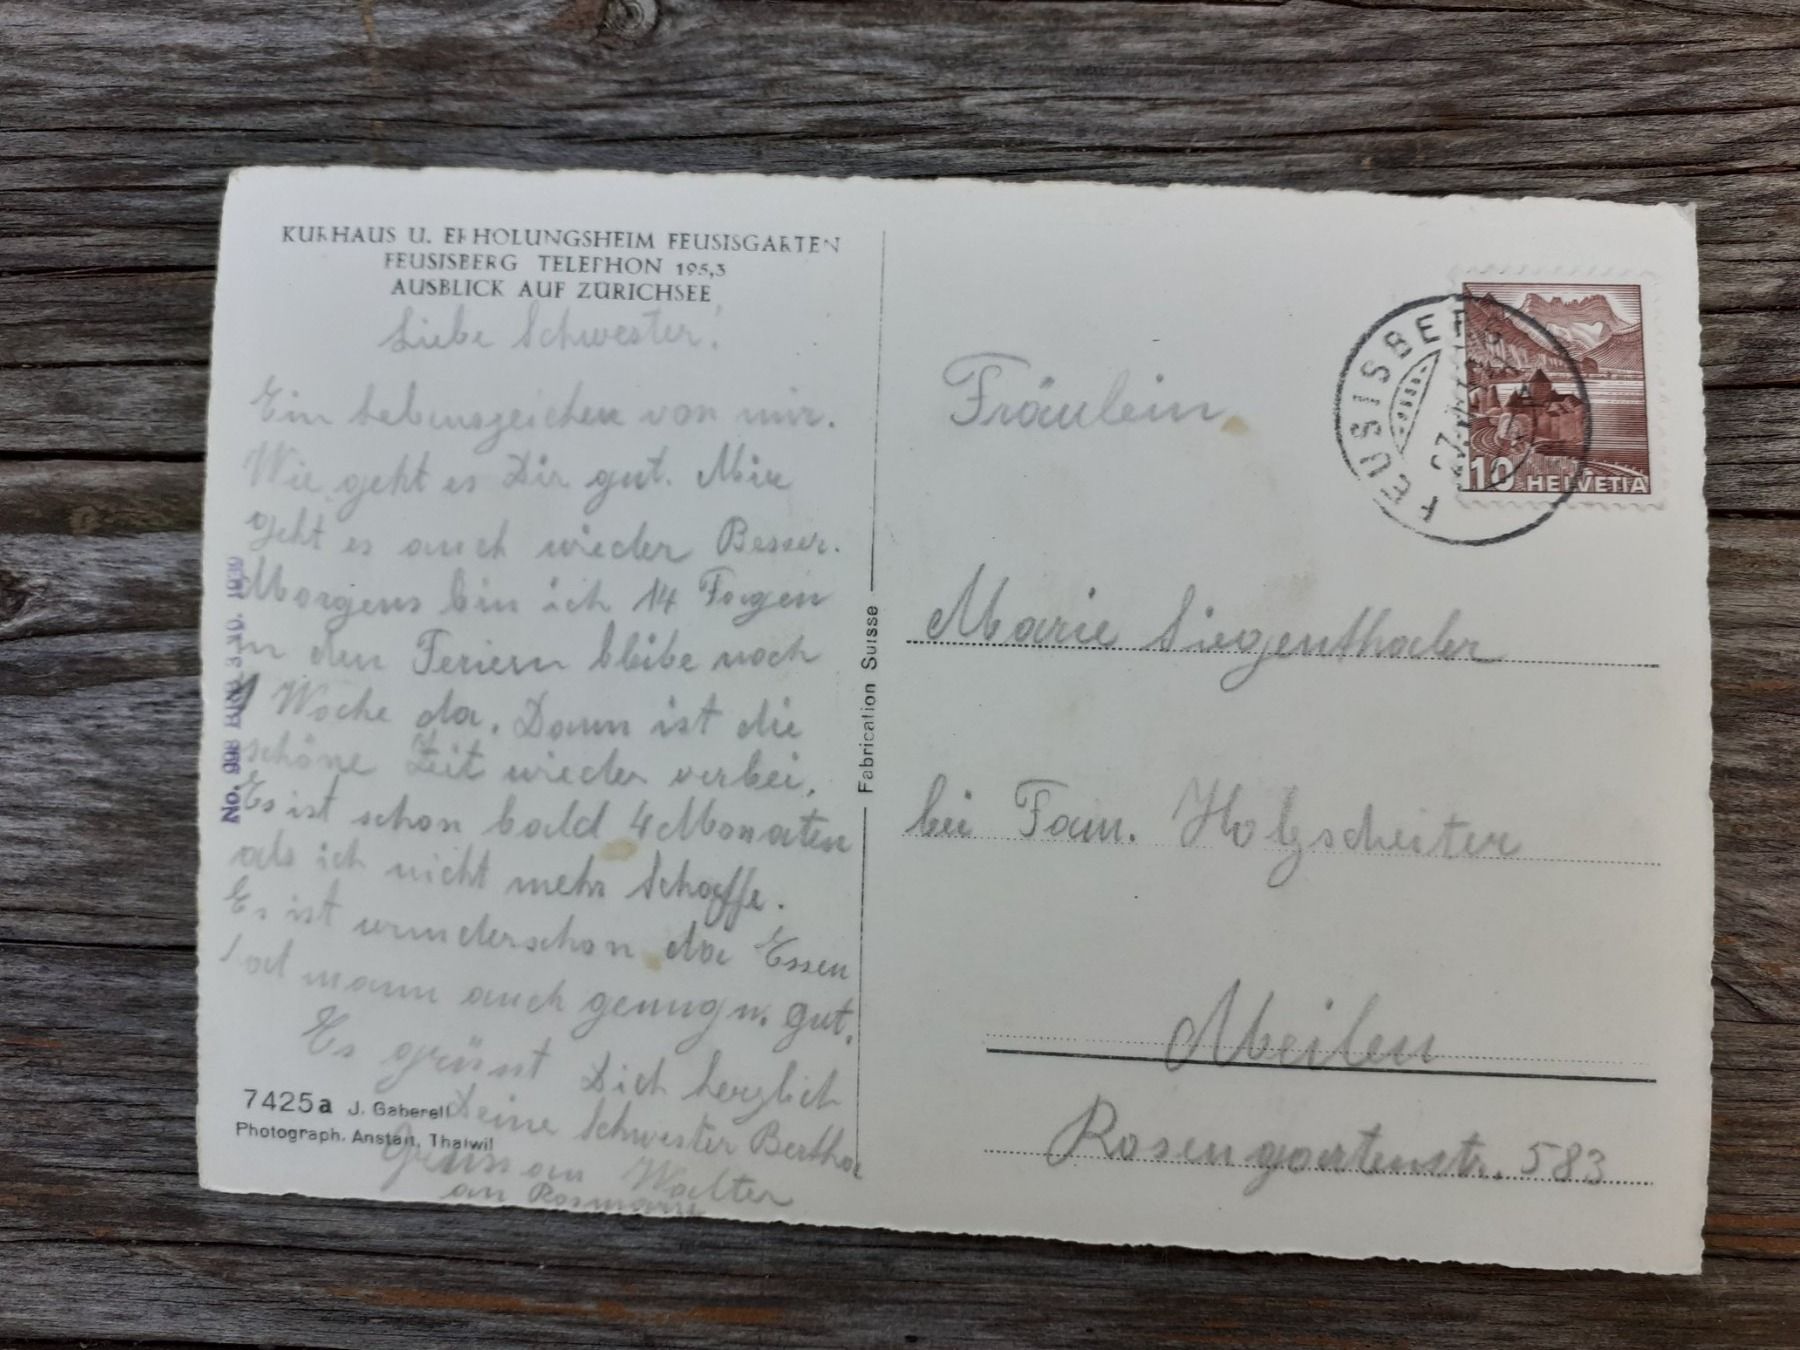 KURHAUS U. ERHOLUNGSHEIM FEUSISGARTEN
FEUSISBERG TELEPHON 195,3
AUSBLICK AUF ZÜRICHSEE
Liebe Schwester!
Ein Lebenszeichen von mir.
Wie geht es Dir gut. Mir
geht es auch wieder Besser.
Morgens bin ich 14 Tagen
in den Feriern bleibe noch
1 Woche da. Dann ist die
schöne Zeit wieder verbei.
Es ist schon bald 4 Monaten
als ich nicht mehr Schaffe.
Es ist wunderschon da Essen
hat mann auch genug u. gut.
Es grüsst Dich herzlich
Deine Schwester Bertha
Gruss an Walter
an Rosmarie
7425a J. Gaberell
Photograph. Anstalt, Thalwil
No. 998 3.10. 1939
Fabrication Suisse
FEUSISBERG
10 HELVETIA
Fräulein
Marie Siegenthaler
bei Fam. Holzscheiter
Meilen
Rosengartenstr. 583